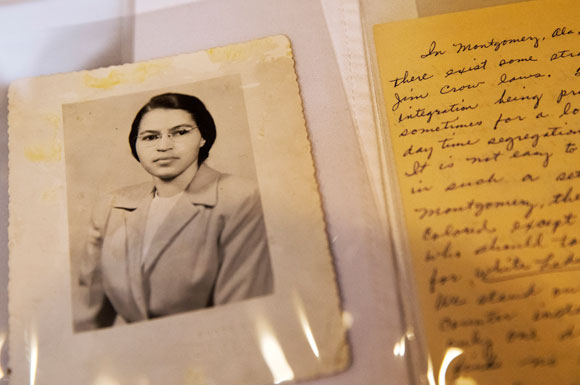 In Montgomery, Ala.
there exist some str
Jim Crow laws.
integration being pr
sometimes for a lo
day time segregation
It is not easy to
in such a set
Montgomery, the
Colored except
who should ta
for, White Lad
We stand on
Counter inst
only one d